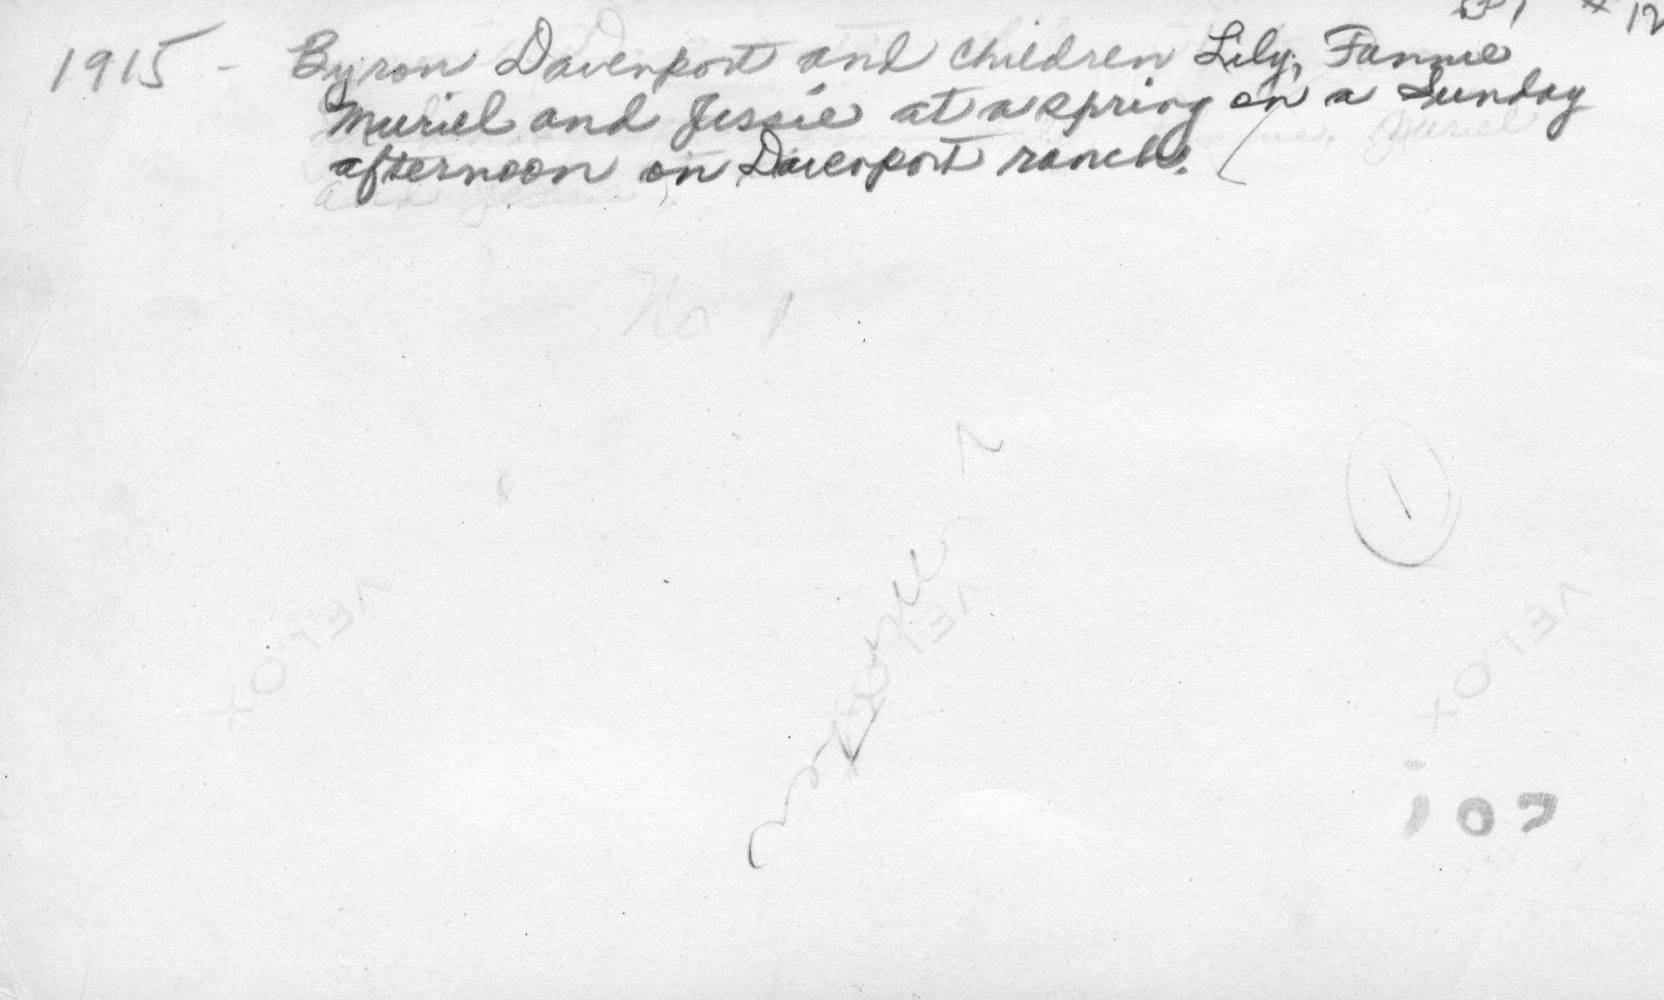 1915 - Byron Davenport and children Lily, Fannie
Muriel and Jessie at a spring on a Sunday
afternoon on Davenport ranch.
No 1
1
VELOX
VELOX
VELOX